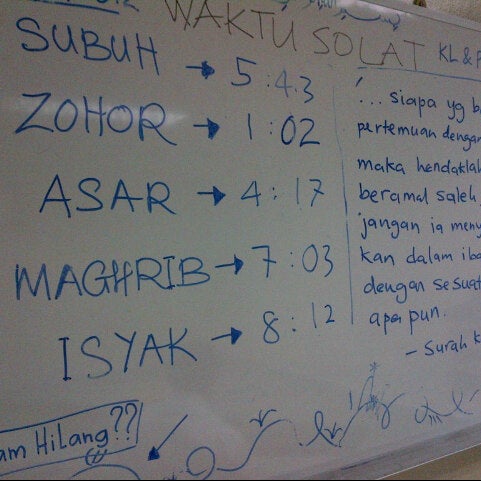 WAKTU SOLAT KL &
SUBUH → 5:43
ZOHOR → 1:02
ASAR → 4:17
MAGHRIB → 7:03
ISYAK → 8:12
"... siapa yg
pertemuan dengan
maka hendaklah
beramal saleh
jangan ia
kan dalam
dengan sesuat
apa pun.
- Surah
Hilang??